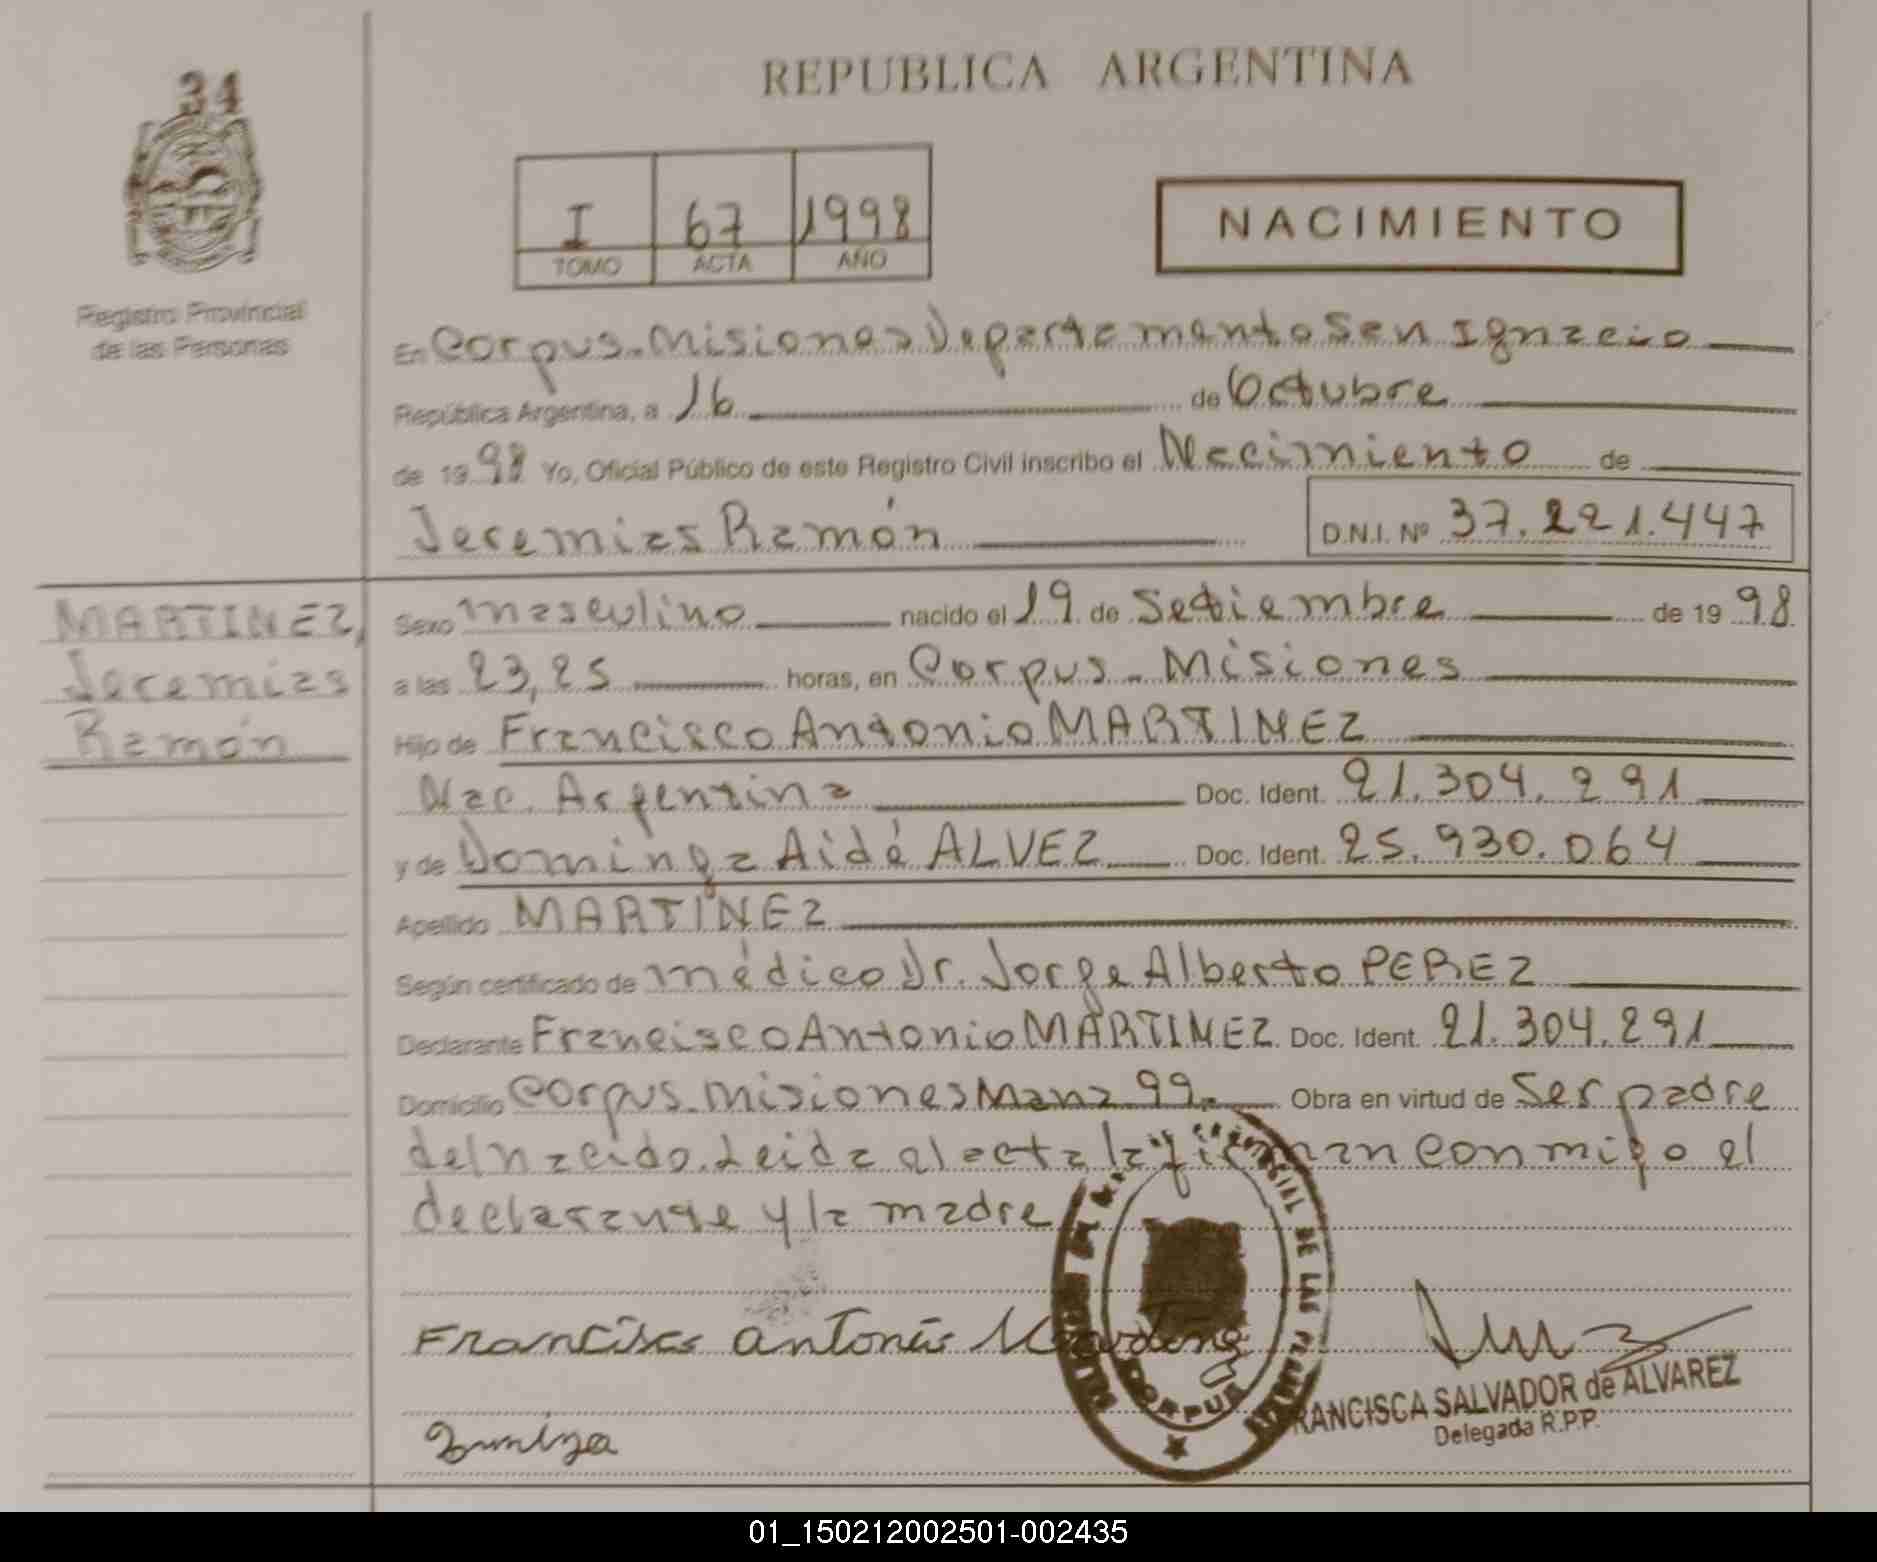 34
REPUBLICA ARGENTINA
I 67 1998
TOMO ACTA AÑO
NACIMIENTO
Registro Provincial
de las Personas
En Corpus-Misiones Departamento San Ignacio
República Argentina, a 16 de Octubre
de 19 98 Yo, Oficial Público de este Registro Civil inscribo el Nacimiento de
Jeremias Ramón D.N.I. Nº 37.221.447
MARTINEZ,
Jeremias
Ramón
Sexo masculino nacido el 19 de Setiembre de 19 98
a las 23,25 horas, en Corpus - Misiones
Hijo de Francisco Antonio MARTINEZ
Nac. Argentina Doc. Ident. 21.304.291
y de Dominga Aidé ALVEZ Doc. Ident. 25.930.064
Apellido MARTINEZ
Según certificado de médico Dr. Jorge Alberto PEREZ
Declarante Francisco Antonio MARTINEZ Doc. Ident. 21.304.291
Domicilio Corpus-misiones Manz 99- Obra en virtud de Ser padre
del nacido. Leida el acta la firman conmigo el
declarante y la madre
DE LAS
CORPUS
Francisco Antonio
FRANCISCA SALVADOR de ALVAREZ
Delegada R.P.P.
01_150212002501-002435